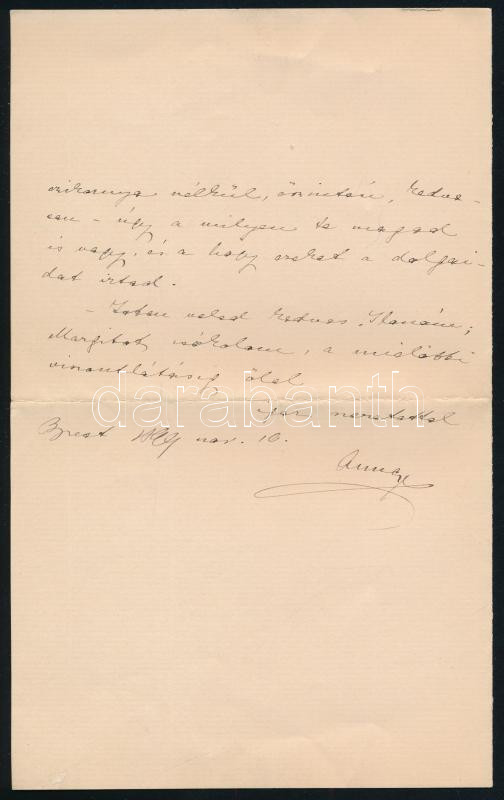 nélkül, őszintén, kedve-
sen - úgy a milyen te magad
is vagy, és a hogy ezeket a dolgai-
dat írtad.
- Isten veled kedves Ilonám;
Margitot csókolom, a mielőbbi
viszontlátásig ölel
igaz szeretettel
Brest nov. 10.
Anna
darabanth